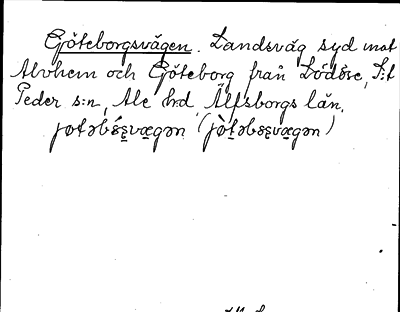 Göteborgsvägen. Landsväg syd mot
Alvhem och Göteborg från Lödöse, S:t
Peder s:n, Ale hd, Älfsborgs län.
jɷtəbśs̱væ̱gən (jɷ̀ṯəbss̱væ̱gən)